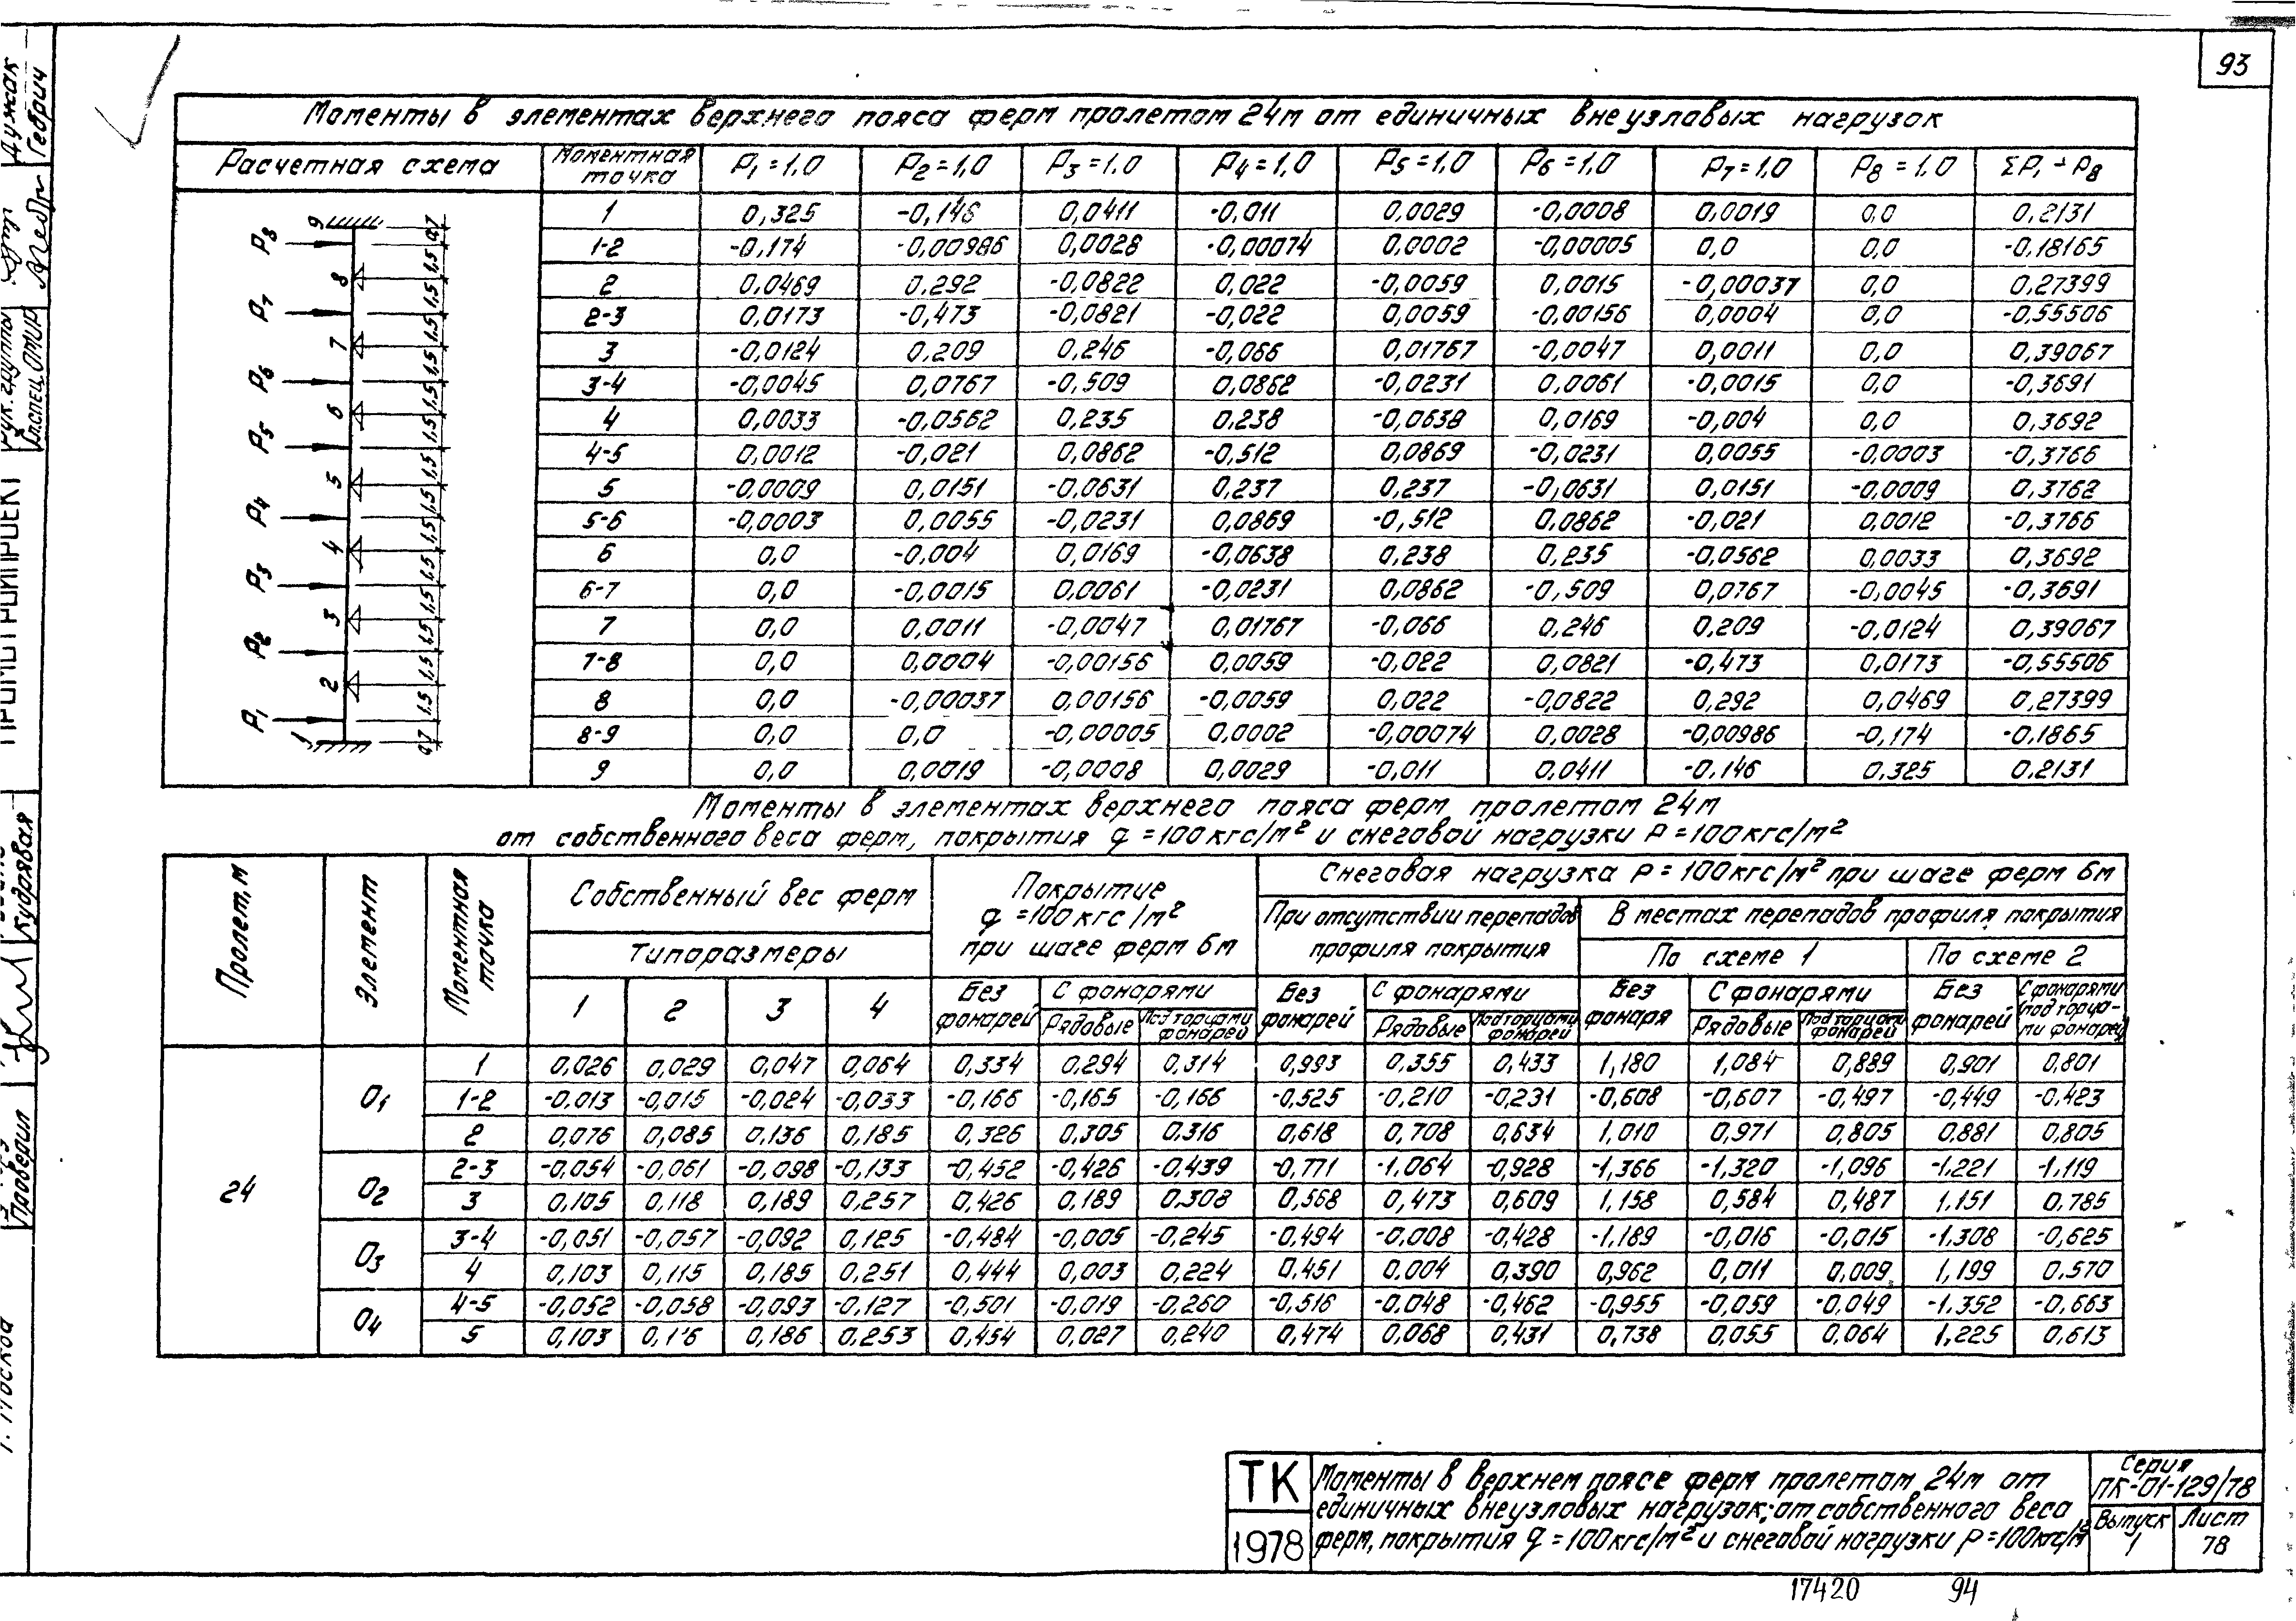 93
Моменты в элементах верхнего пояса ферм пролетом 24м от единичных внеузловых нагрузок
Расчетная схема Моментная точка P1=1,0 P2=1,0 P3=1,0 P4=1,0 P5=1,0 P6=1,0 P7=1,0 P8=1,0 ΣP1÷P8
1 0,325 -0,146 0,0411 -0,011 0,0029 -0,0008 0,0019 0,0 0,2131
1-2 -0,174 -0,00986 0,0028 -0,00074 0,0002 -0,00005 0,0 0,0 -0,18165
2 0,0469 0,292 -0,0822 0,022 -0,0059 0,0015 -0,00037 0,0 0,27399
2-3 0,0173 -0,473 -0,0821 -0,022 0,0059 -0,00156 0,0004 0,0 -0,55506
3 -0,0124 0,209 0,246 -0,066 0,01767 -0,0047 0,0011 0,0 0,39067
3-4 -0,0045 0,0767 -0,509 0,0862 -0,0231 0,0061 -0,0015 0,0 -0,3691
4 0,0033 -0,0562 0,235 0,238 -0,0638 0,0169 -0,004 0,0 0,3692
4-5 0,0012 -0,021 0,0862 -0,512 0,0869 -0,0231 0,0055 -0,0003 -0,3766
5 -0,0009 0,0151 -0,0631 0,237 0,237 -0,0631 0,0151 -0,0009 0,3762
5-6 -0,0003 0,0055 -0,0231 0,0869 -0,512 0,0862 -0,021 0,0012 -0,3766
6 0,0 -0,004 0,0169 -0,0638 0,238 0,235 -0,0562 0,0033 0,3692
6-7 0,0 -0,0015 0,0061 -0,0231 0,0862 -0,509 0,0767 -0,0045 -0,3691
7 0,0 0,0011 -0,0047 0,01767 -0,066 0,246 0,209 -0,0124 0,39067
7-8 0,0 0,0004 -0,00156 0,0059 -0,022 0,0821 -0,473 0,0173 -0,55506
8 0,0 -0,00037 0,00156 -0,0059 0,022 -0,0822 0,292 0,0469 0,27399
8-9 0,0 0,0 -0,00005 0,0002 -0,00074 0,0028 -0,00986 -0,174 -0,1865
9 0,0 0,0019 -0,0008 0,0029 -0,011 0,0411 -0,146 0,325 0,2131
P8 P7 P6 P5 P4 P3 P2 P1
9 8 7 6 5 4 3 2 1
0,7 1,5 1,5 1,5 1,5 1,5 1,5 1,5 1,5 1,5 1,5 1,5 1,5 1,5 1,5 0,7
Моменты в элементах верхнего пояса ферм пролетом 24м
от собственного веса ферм, покрытия q=100кгс/м² и снеговой нагрузки P=100кгс/м²
Пролет, м Элемент Моментная точка Собственный вес ферм Покрытие q=100кгс/м² при шаге ферм 6м Снеговая нагрузка P=100кгс/м² при шаге ферм 6м
При отсутствии перепадов профиля покрытия В местах перепадов профиля покрытия
Типоразмеры По схеме 1 По схеме 2
1 2 3 4 Без фонарей С фонарями Без фонарей С фонарями Без фонаря С фонарями Без фонарей С фонарями (под торцами фонарей)
Рядовые Под торцами фонарей Рядовые Под торцами фонарей Рядовые Под торцами фонарей
24
O1 1 0,026 0,029 0,047 0,064 0,334 0,294 0,314 0,993 0,355 0,433 1,180 1,084 0,889 0,901 0,801
1-2 -0,013 -0,015 -0,024 -0,033 -0,166 -0,165 -0,166 -0,525 -0,210 -0,231 -0,608 -0,607 -0,497 -0,449 -0,423
2 0,076 0,085 0,136 0,185 0,326 0,305 0,316 0,618 0,708 0,634 1,010 0,971 0,805 0,881 0,805
O2 2-3 -0,054 -0,061 -0,098 -0,133 -0,452 -0,426 -0,439 -0,771 -1,064 -0,928 -1,366 -1,320 -1,096 -1,221 -1,119
3 0,105 0,118 0,189 0,257 0,426 0,189 0,308 0,568 0,473 0,609 1,158 0,584 0,487 1,151 0,785
O3 3-4 -0,051 -0,057 -0,092 0,125 -0,484 -0,005 -0,245 -0,494 -0,008 -0,428 -1,189 -0,016 -0,015 -1,308 -0,625
4 0,103 0,115 0,185 0,251 0,444 0,003 0,224 0,451 0,004 0,390 0,962 0,011 0,009 1,199 0,570
O4 4-5 -0,052 -0,058 -0,093 -0,127 -0,501 -0,019 -0,260 -0,516 -0,048 -0,462 -0,955 -0,059 -0,049 -1,352 -0,663
5 0,103 0,186 0,253 0,454 0,027 0,240 0,474 0,068 0,431 0,738 0,055 0,064 1,225 0,613
ТК
1978
Моменты в верхнем поясе ферм пролетом 24м от
единичных внеузловых нагрузок; от собственного веса
ферм, покрытия q=100кгс/м² и снеговой нагрузки P=100кгс/м²
Серия
ПК-01-129/78
Выпуск 1
Лист 78
17420 94
Рук. группы
Гл.спец.ОТИР
Гебрич
Кудрявая
Проверил
г. Москва